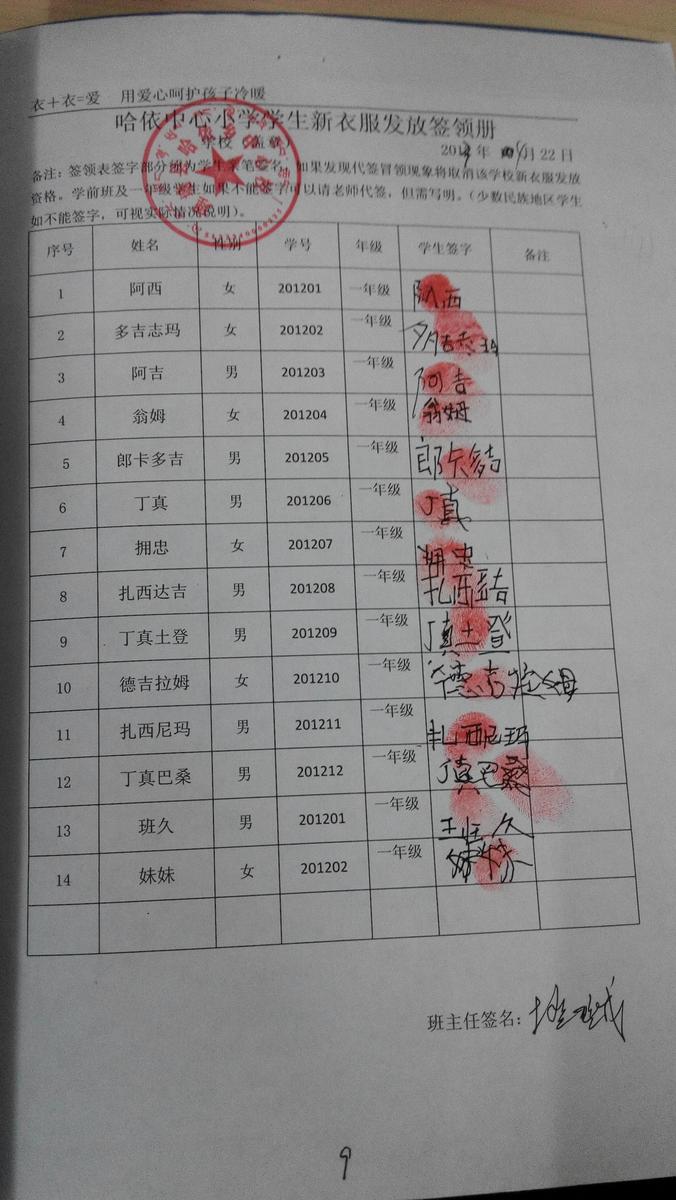 衣+衣=爱 用爱心呵护孩子冷暖
哈依中心小学学生新衣服发放签领册
学校 盖章 年 月 22 日
备注：签领表签字部分须为学生亲笔签名，如果发现代签冒领现象将取消该学校新衣服发放
资格。学前班及一年级学生如果不能签字可以请老师代签，但需写明。（少数民族地区学生
如不能签字，可视实际情况说明）。
序号 姓名 性别 学号 年级 学生签字 备注
1 阿西 女 201201 一年级 阿西
2 多吉志玛 女 201202 一年级 多吉志玛
3 阿吉 男 201203 一年级 阿吉
4 翁姆 女 201204 一年级 翁姆
5 郎卡多吉 男 201205 一年级 郎卡多吉
6 丁真 男 201206 一年级 丁真
7 拥忠 女 201207 一年级 拥忠
8 扎西达吉 男 201208 一年级 扎西达吉
9 丁真土登 男 201209 一年级 丁真土登
10 德吉拉姆 女 201210 一年级 德吉拉姆
11 扎西尼玛 男 201211 一年级 扎西尼玛
12 丁真巴桑 男 201212 一年级 丁真巴桑
13 班久 男 201201 一年级 班久
14 妹妹 女 201202 一年级 妹妹
班主任签名：
9